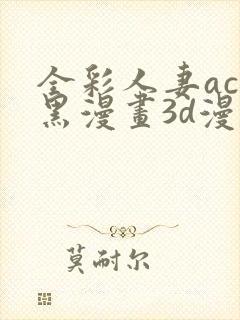 全彩人妻ac
黑漫畫3d漫
莫耐尔